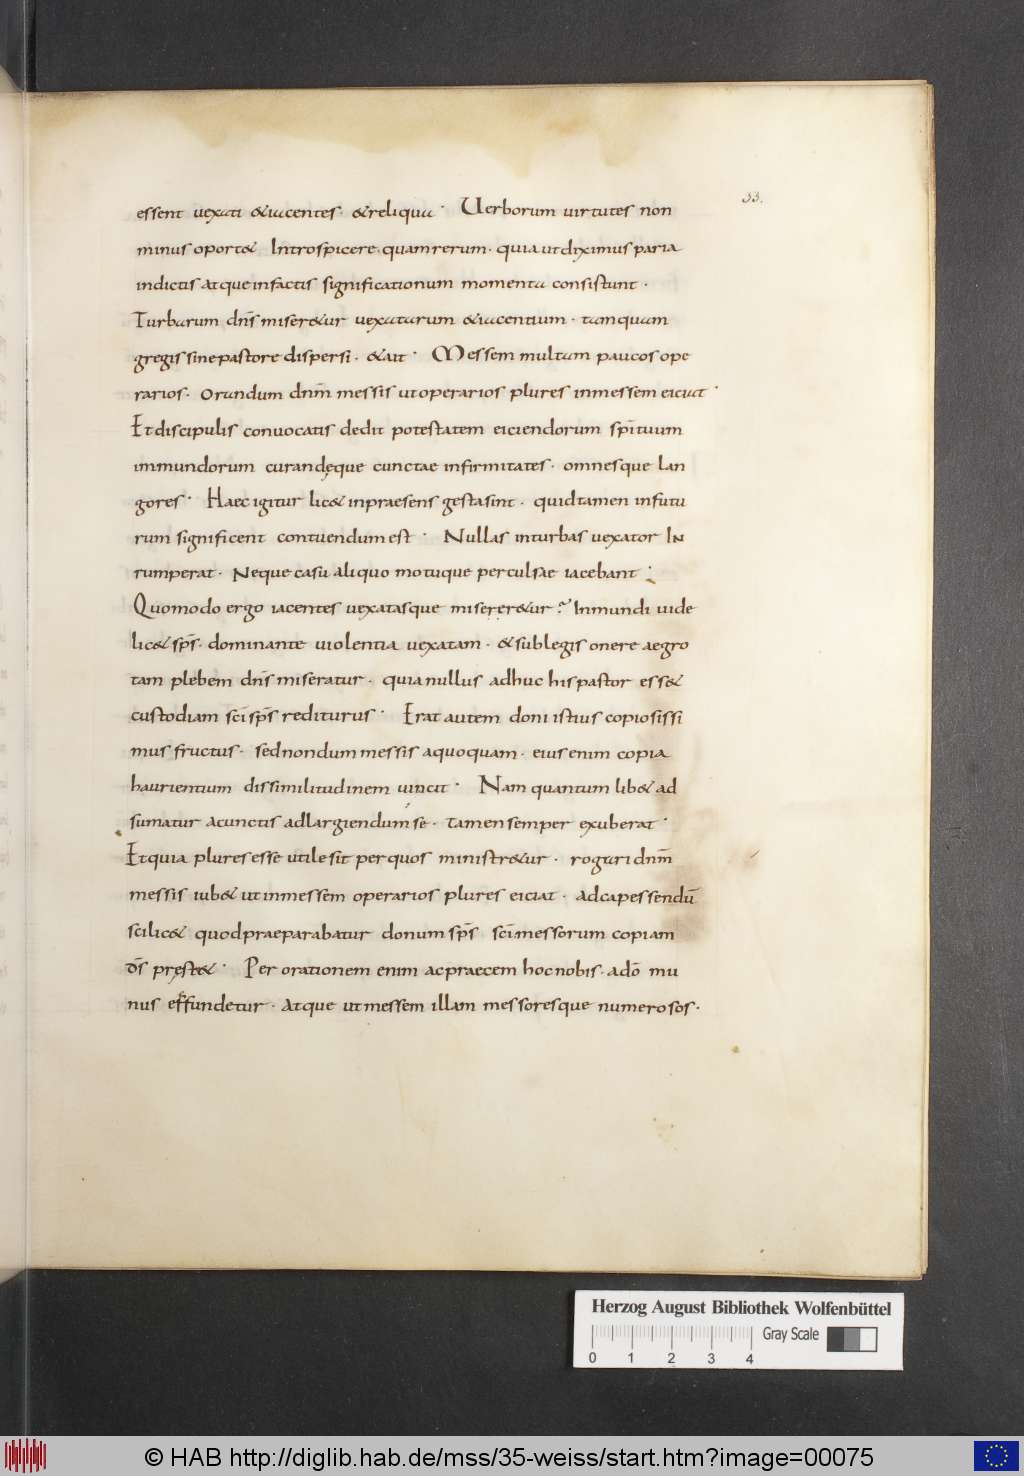 33.
essent uexati & iacentes · & reliqua · Uerborum uirtutes non
minus oport& Introspicere · quam rerum · quia ut diximus paria
in dictis atque in factis significationum momenta consistunt ·
Turbarum dn̄s miser&ur uexatarum & iacentium · tamquam
gregis sine pastore dispersi · & ait · Messem multam paucos ope
rarios · Orandum dnm̄ messis ut operarios plures in messem eiciat ·
Et discipulis conuocatis dedit potestatem eiciendorum spi͞tuum
immundorum curandęque cunctae infirmitates · omnesque lan
gores · Haec igitur lic& in praesens gesta sint · quid tamen in futu
rum significent contuendum est · Nullas in turbas uexator In
rumperat · Neque casu aliquo motuque perculsae iacebant ·
Quomodo ergo iacentes uexatasque miserer&ur ? Inmundi uide
lic& sp̄s · dominante uiolentia uexatam · & sub legis onere aegro
tam plebem dn̄s miseratur · quia nullus adhuc his pastor ess&
custodiam sc̄i sp̄s rediturus · Erat autem doni istius copiosissi
mus fructus · sed nondum messis a quoquam · eius enim copia
haurientium dissimilitudinem uincit · Nam quantum lib& ad
sumatur a cunctis ad largiendum se · tamen semper exuberat ·
Et quia plures esse utile sit per quos ministr&ur · rogari dnm̄
messis iub& ut in messem operarios plures eiciat · ad capessendū
scilic& quod praeparabatur donum sp̄s sc̄i messorum copiam
d̄s pręst& · Per orationem enim ac praecem hoc nobis · a dō mu
nus effundetur · Atque ut messem illam messoresque numerosos ·
Herzog August Bibliothek Wolfenbüttel
Gray Scale
0 1 2 3 4
© HAB http://diglib.hab.de/mss/35-weiss/start.htm?image=00075